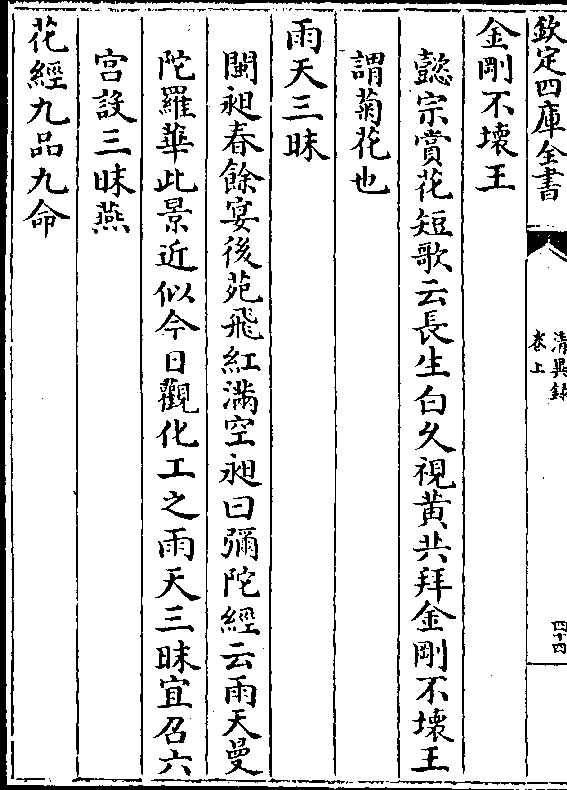 欽定四庫全書
清異錄
卷上
四十四
金剛不壞王
懿宗賞花短歌云長生白久視黄共拜金剛不壞王
謂菊花也
雨天三昧
閩昶春餘宴後苑飛紅滿空昶曰彌陀經云雨天曼
陀羅華此景近似今日觀化工之雨天三昧宜召六
宫設三昧燕
花經九品九命